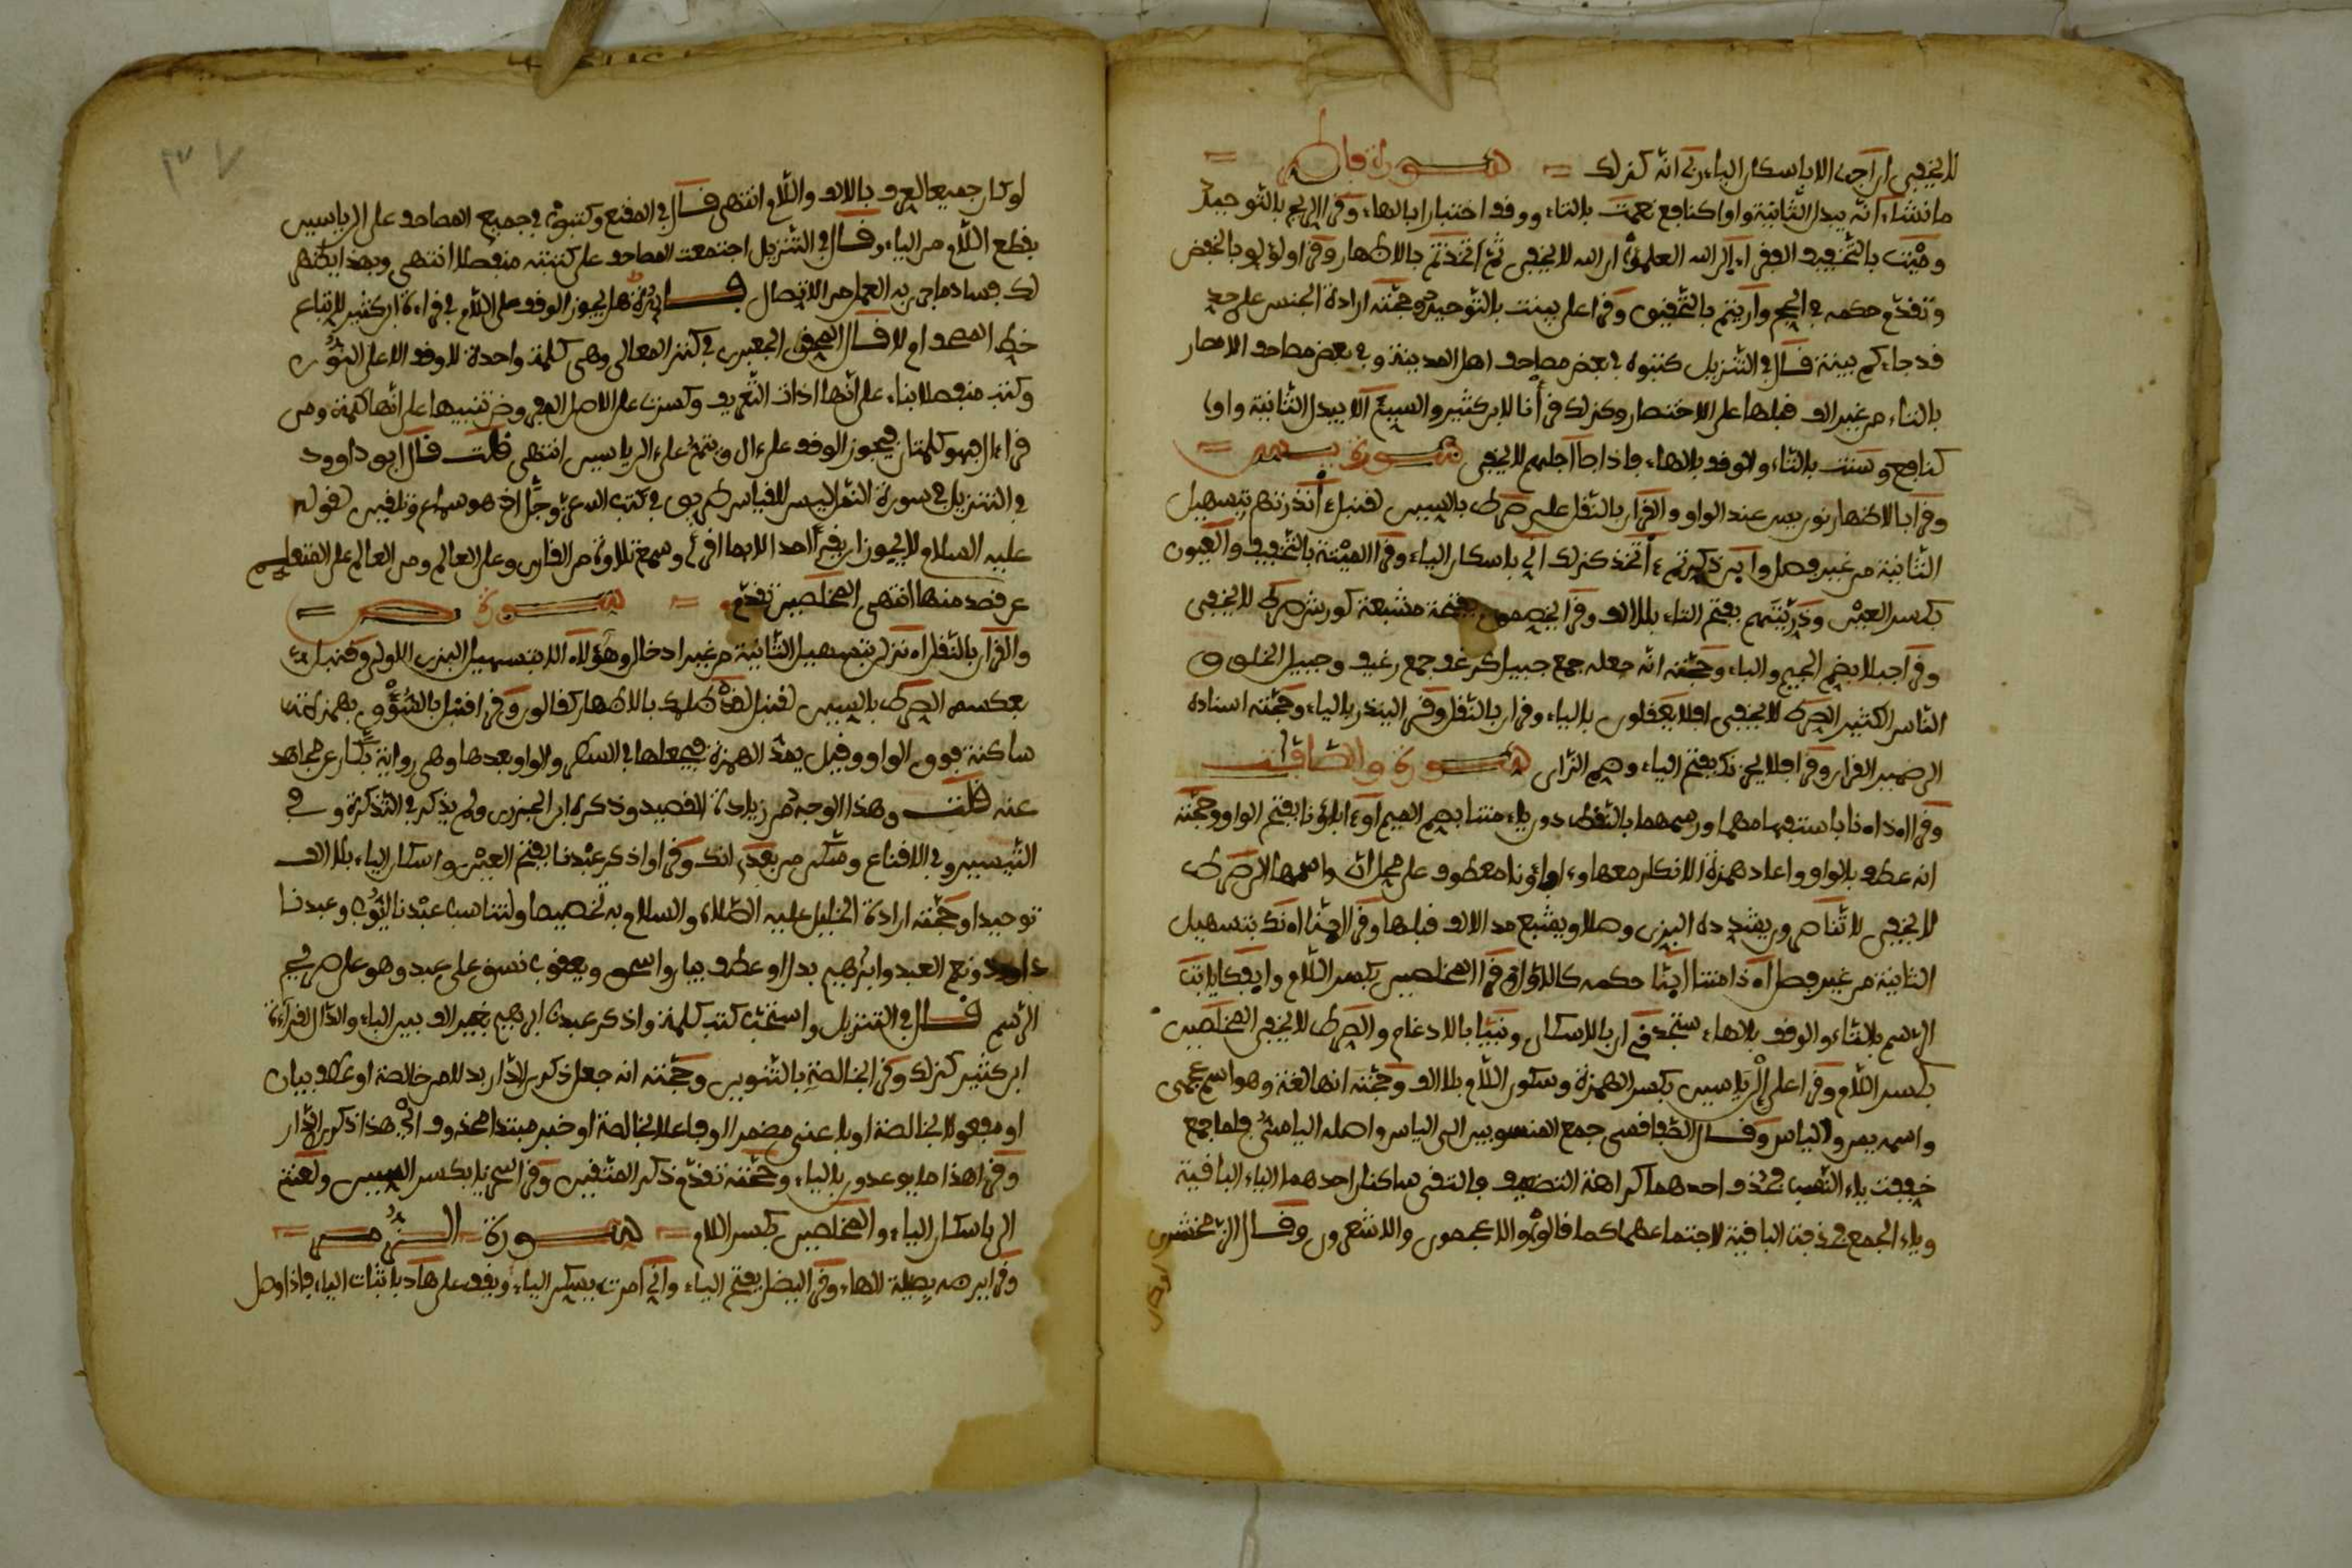 لا يخفى ان اجرى الا باسكان الياء ربى انه كذلك سورة فاطر
ما نشاء انه يبدل الثانية واوا كنافع نعمت بالتاء ووقف اختبارا بالهاء وقرأ الريح بالتوحيد
وميت بالتخفيف الفقراء الى الله العلمؤا ان الله لا يخفى ثم اخذتم بالاظهار وقرأ ولؤلؤ بالخفض
وتقدم حكمه في الحج وأريتم بالتحقيق وقرأ على بينت بالتوحيد وحجته ارادة الجنس على حد
قد جاءكم بينة قال في التنزيل كتبوه في بعض مصاحف اهل المدينة وفي بعض مصاحف الامصار
بالتاء من غير الف قبلها على الاختصار وكذلك قرأنا لابن كثير والسيئ الا يبدل الثانية واوا
كنافع وسنت بالتاء والوقف بالهاء فاذا جا اجلهم لا يخفى سورة يس
وقرأ بالاظهار نون يس عند الواو والقران بالنقل على صرط بالسين لقنبل ءأنذرتهم بتسهيل
الثانية من غير فصل وأين ذكرتم ءأتخذ كذلك انى باسكان الياء وقرأ الميتة بالتخفيف والعيون
بكسر العين وذريتهم بفتح التاء بلا الف وقرأ يخصمون بفتحة مشبعة كورش صرط لا يخفى
وقرأ جبلا بضم الجيم والباء وحجته انه جعله جمع جبيل كرغف جمع رغيف وجبيل الخلق
الناس الكثير الصرط لا يخفى افلا يعقلون بالياء وقران بالنقل وقرأ لينذر بالياء وحجته اسناده
الى ضمير القران وقرأ فلا يحزنك بفتح الياء وضم الزاى سورة والصافات
وقرأ اءذا اءنا باستفهامهما ورسمهما بالنقط دون ياء متنا بضم الميم او ءاباؤنا بفتح الواو وحجته
انه عطف بالواو واعاد همزة الانكار معها وءاباؤنا معطوف على محل ان واسمها الى صرط
لا يخفى لا تناصرون يشدده البزى وصلا ويشبع مد الالف قبلها وقرأ ائنا اءنك بتسهيل
الثانية من غير فصل اءذا متنا اءنا حكمه كالاول وقرأ المخلصين بكسر اللام وايفكا لاثبت
الرسم بالتاء والوقف بالهاء ستجدنى ان بالاسكان ونبيا بالادغام والصرط لا يخفى المخلصين
بكسر اللام وقرأ على إل ياسين بكسر الهمزة وسكون اللام بلا الف وحجته انها لغة وهو اسم عجمى
واسمه يس والياس وقال الصفاقسى جمع المنسوبين الى الياس واصله الياسى فلما جمع
خففت ياء النسب فحذف احدهما كراهة التضعيف فالتقى ساكنان احدهما الياء الباقية
وياء الجمع فحذفت الباقية لاجتماعهما كما قالوا والاعجمون والاشعرون وقال الزمخشرى
لو كان جميعا لعرف بالالف واللام انتهى قال في المقنع وكتبوا في جميع المصاحف على ال ياسين
بقطع اللام من الياء وقال في التنزيل اجتمعت المصاحف على كتبته منفصلا انتهى وبهذا يظهر
لك فساد ما جرى به العمل من الاتصال فائدة هل يجوز الوقف على اللام في قراءة ابن كثير لاتباع
خط المصحف ام لا قال المحقق الجعبرى في كنز المعانى وهى كلمة واحدة لا وقف الا على النون
وكتب منفصلا بناء على انها اداة التعريف وكسرت على الاصل المرفوض تنبيها على انها كلمة ومن
قرأ ءال فهو كلمتان فيجوز الوقف على ءال ويتم على ال ياسين انتهى قلت قال ابو داوود
في التنزيل في سورة النمل ليس للقياس طريق في كتب الله عز وجل انما هو سماع وتلقين لقوله
عليه السلام لا يجوز ان يقرأ احد الا بما اقرئ وسمع تلاوة من القارى على العالم ومن العالم على المتعلم
عن قصد منها انتهى المخلصين تقدم سورة ص
والقران بالنقل اءنزل بتسهيل الثانية من غير ادخال وهؤلاء الا بتسهيل البزى الاولى وقنبل
بعكسه الصرط بالسين لقنبل لقد ظلمك بالاظهار كقالون وقرأ قنبل بالسؤق بهمزة
ساكنة فوق الواو وقيل بهذا الهمزة فيجعلها في السطر والواو بعدها وهى رواية بكار عن مجاهد
عنه قلت وهذا الوجه من زيادة القصيد وذكره ابن الجزرى ولم يذكر في التذكرة و في
التيسير وفي الاقناع ومسكن من بعدى انك وقرأ واذكر عبدنا بفتح العين واسكان الباء بلا الف
توحيدا وحجته ارادة الخليل عليه الصلاة والسلام به تخصيصا ولتناسب عبدنا ايوب وعبدنا
داوود ونعم العبد وابرهيم بدل او عطف بيان واسحق ويعقوب نسق على عبد وهو على صريح
الرسم قال في التنزيل واستحب كتب كلمة واذكر عبدنا ابرهيم بغير الف بين الباء والدال لقراءة
ابن كثير كذلك وقرأ بخالصة بالتنوين وحجته انه جعل ذكرى الدار بدلا من خالصة او عطف بيان
او مفعولا بخالصة او باعنى مضمرا او فاعلا لخالصة او خبر مبتدا محذوف اى هذا ذكرى الدار
وقرأ هذا ما يوعدون بالياء وحجته تقدم ذكر المتقين وقرأ سخريا بكسر السين ولعنتى
الى باسكان الياء والمخلصين بكسر اللام سورة الزمر
وقرأ يرضه بصلة الهاء وقرأ ليضل بفتح الياء وانى امرت بسكن الياء ويقف على هاد باثبات الياء فاذا وصل